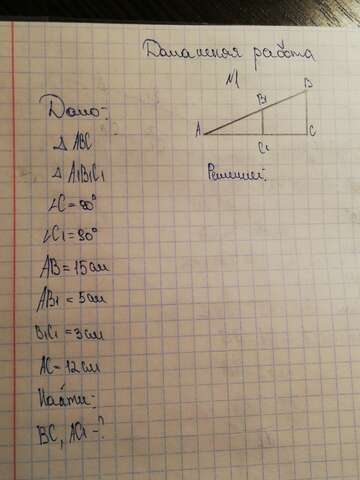 Домашняя работа
№1
B
B1
A
C
C1
Дано:
Δ ABC
Δ A1B1C1
∠C = 90°
∠C1 = 90°
AB = 15 см
AB1 = 5 см
B1C1 = 3 см
AC = 12 см
Найти:
BC, AC1 - ?
Решение: